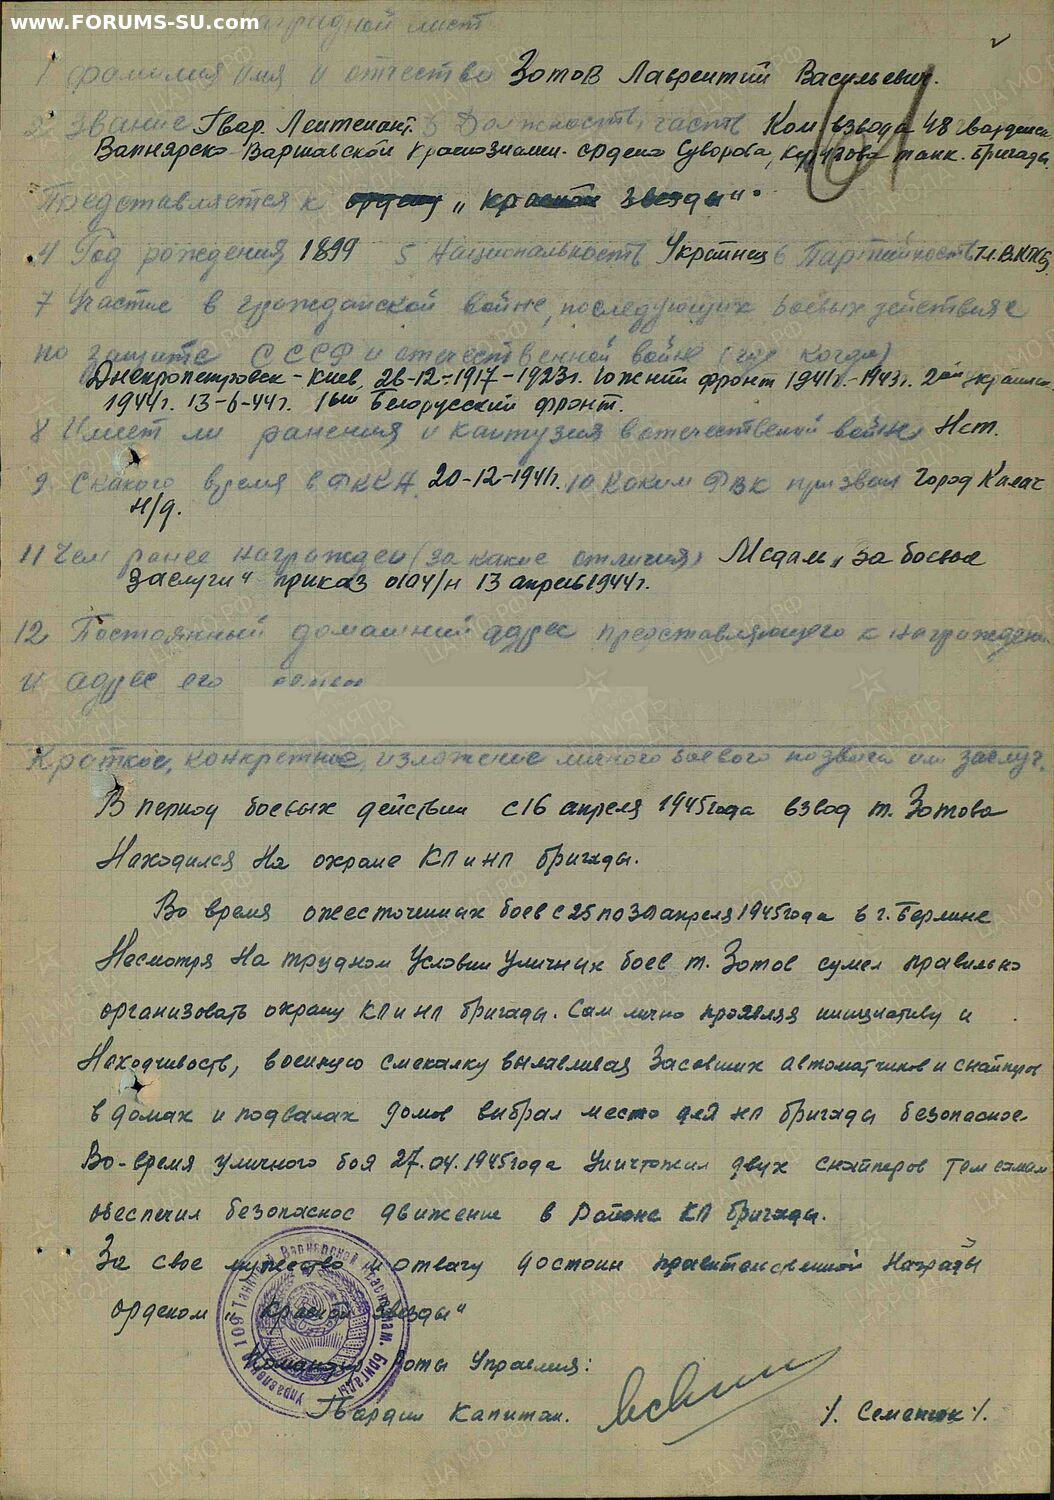 www.FORUMS-SU.com
Наградной лист
1 фамилия имя и отчество Зотов Лаврентий Васильевич.
2 Звание Гвар. Лейтенант. 3 Должность, часть Ком взвода 48 Гвардейск
Вапнярско-Варшавской Краснознамен. ордена Суворова, Кутузова танк. бригады.
Представляется к ордену „Красной Звезды“.
4 Год рождения 1899 5 Национальность Украинец 6 Партийность чл. ВКП(б)
7 Участие в гражданской войне, последующих боевых действиях
по защите СССР и отечественной войне (где когда)
Днепропетровск-Киев, 26-12-1917-1923г. Южный фронт 1941г.-1943г. 2ой украин.
1944г. 13-6-44г. 1ый Белорусский фронт.
8 Имеет ли ранения и контузия в отечественой войне Нет.
9. С какого время в РККА. 20-12-1941г. 10 Каким РВК призван город Калач
н/д.
11 Чем ранее награжден (за какие отличия) Медаль „За боевые
заслуги“ приказ 0104/н 13 апреля 1944г.
12 Постоянный домашний адрес представляющего к награждению
и адрес его семьи
Краткое, конкретное, изложение личного боевого подвига или заслуг.
В период боевых действий с 16 апреля 1945 года взвод т. Зотова
Находился на охране КП и НП бригады.
Во время ожесточенных боев с 25 по 30 апреля 1945 года в г. Берлине
Несмотря на трудном условии уличных боев т. Зотов сумел правильно
организовать охрану КП и НП бригады. Сам лично проявляя инициативу и
Находчивость, военную смекалку вылавливая Засевших автоматчиков и снайперов
в домах и подвалах домов выбрал место для НП бригады безопасное
Во-время уличного боя 27.04.1945 года Уничтожил двух снайперов тем самым
обеспечил безопасное движение в районе КП бригады.
За свое мужество и отвагу достоин правительственной Награды
орденом „Красной Звезды“
Командир Роты Управления:
Гвардии Капитан. /. Семенюк /.
Управление 109 Танковой Вапнярской Краснознам. Бригады